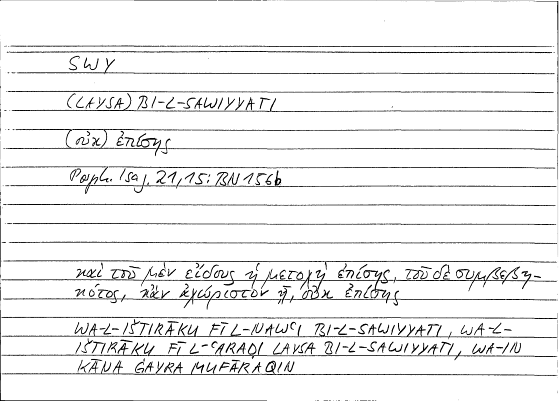 SWY
(LAYSA) BI-L-SAWIYYATI
(οὐκ) ἐπίσης
Porph. Isag. 21,15: BN 156b
καὶ τοῦ μὲν εἴδους ἡ μετοχὴ ἐπίσης, τοῦ δὲ συμβεβη-
κότος, κἂν ἀχώριστον ᾖ, οὐκ ἐπίσης
WA-L-IŠTIRĀKU FĪ L-NAWʿI BI-L-SAWIYYATI, WA-L-
IŠTIRĀKU FĪ L-ʿARAḌI LAYSA BI-L-SAWIYYATI, WA-IN
KĀNA ĠAYRA MUFĀRAQIN